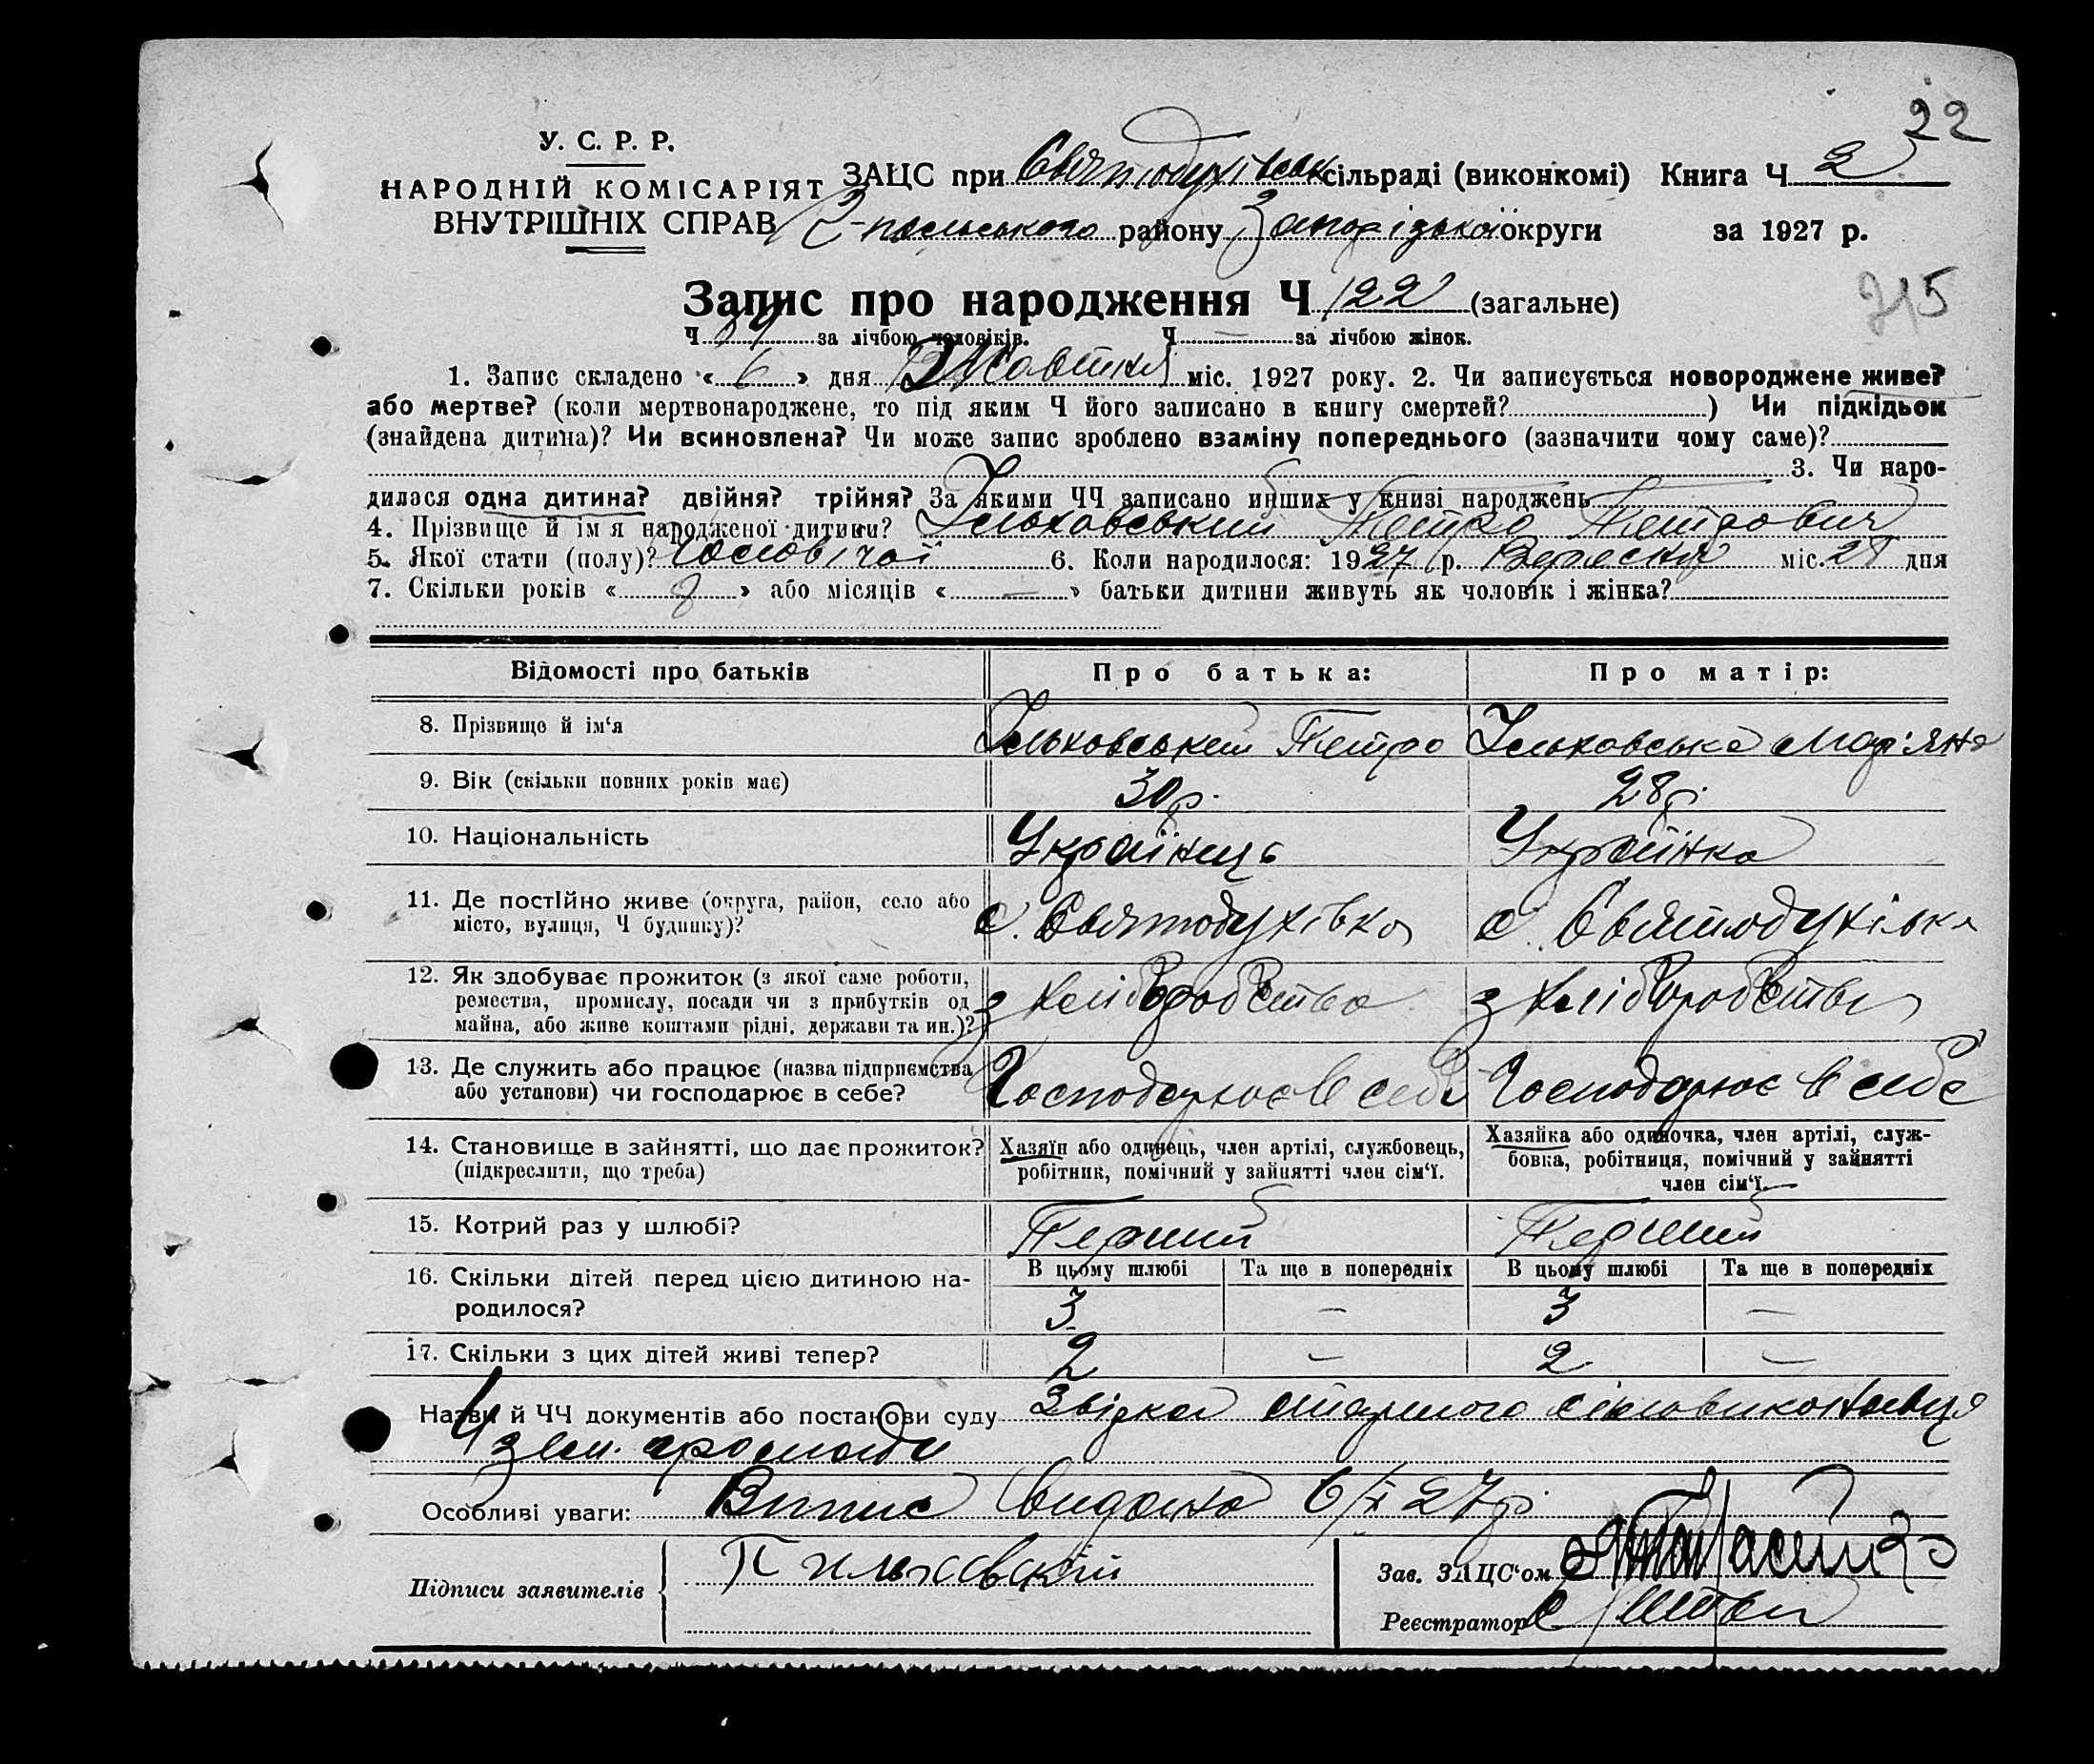 22
У. С. Р. Р.
НАРОДНІЙ КОМІСАРІЯТ
ВНУТРІШНІХ СПРАВ
ЗАЦС при Святодухівськ сільраді (виконкомі) Книга Ч 2
2-польського району Запорізької округи за 1927 р.
Запис про народження Ч 122 (загальне)
315
Ч за лічбою чоловіків. Ч — за лічбою жінок.
1. Запис складено « 6 » дня Жовтня міс. 1927 року. 2. Чи записується новороджене живе?
або мертве? (коли мертвонароджене, то під яким Ч його записано в книгу смертей? ) Чи підкідьок
(знайдена дитина)? Чи всиновлена? Чи може запис зроблено взаміну попереднього (зазначити чому саме)?
3. Чи наро-
дилася одна дитина? двійня? трійня? За якими ЧЧ записано инших у книзі народжень
4. Прізвище й ім я народженої дитини? Ільковський Петро Петрович
5. Якої стати (полу)? Чоловічої 6. Коли народилося: 1927 р. Вересня міс. 28 дня
7. Скільки років « 8 » або місяців « — » батьки дитини живуть як чоловік і жінка?
Відомості про батьків Про батька: Про матір:
8. Прізвище й ім‘я Ільковський Петро Ільковська Мар'яна
9. Вік (скільки повних років має) 30 р. 28 р.
10. Національність Українець Українка
11. Де постійно живе (округа, район, село або
місто, вулиця, Ч будинку)? с. Святодухівка с. Святодухівка
12. Як здобуває прожиток (з якої саме роботи,
ремества, промислу, посади чи з прибутків од
майна, або живе коштами рідні, держави та ин.)? з хліборобства з хліборобства
13. Де служить або працює (назва підприємства
або установи) чи господарює в себе? Господарює в себе Господарює в себе
14. Становище в зайнятті, що дає прожиток?
(підкреслити, що треба)
Хазяїн або одинець, член артілі, службовець,
робітник, помічний у зайнятті член сім‘ї.
Хазяйка або одиночка, член артілі, служ-
бовка, робітниця, помічний у зайнятті
член сім‘ї.
15. Котрий раз у шлюбі? Перший Перший
В цьому шлюбі Та ще в попередніх В цьому шлюбі Та ще в попередніх
16. Скільки дітей перед цією дитиною на-
родилося? 3 — 3 —
17. Скільки з цих дітей живі тепер? 2 — 2 —
Назви й ЧЧ документів або постанови суду Звірка старшого сільвиконавця
4 зем. громади
Особливі уваги: Випис видана 6/X 27 р.
Підписи заявителів П ильковский
Зав. ЗАЦС‘ом
Реєстратор